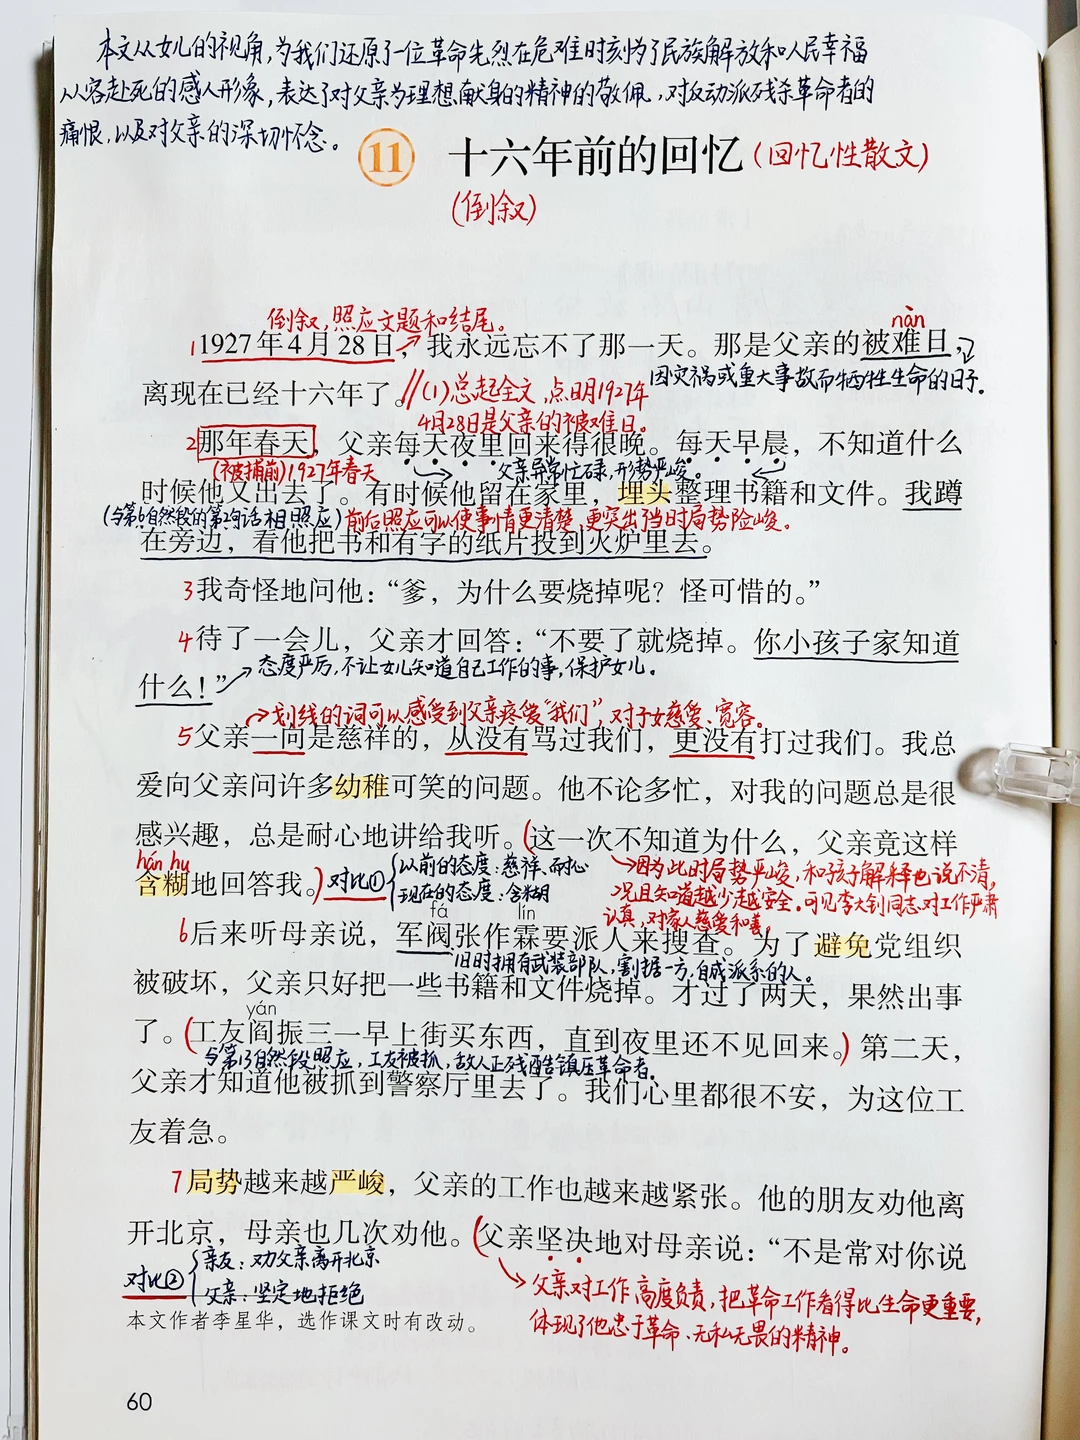 本文从女儿的视角，为我们还原了一位革命先烈在危难时刻为了民族解放和人民幸福
从容赴死的感人形象，表达了对父亲为理想献身的精神的敬佩，对反动派残杀革命者的
痛恨，以及对父亲的深切怀念。
11 十六年前的回忆（回忆性散文）
（倒叙）
倒叙，照应文题和结尾。
nàn
1 1927年4月28日，我永远忘不了那一天。那是父亲的被难日，
因灾祸或重大事故而牺牲生命的日子。
离现在已经十六年了。//（1）总起全文，点明1927年
4月28日是父亲的被难日。
2那年春天，父亲每天夜里回来得很晚。每天早晨，不知道什么
（被捕前）1927年春天
父亲异常忙碌，形势严峻。
时候他又出去了。有时候他留在家里，埋头整理书籍和文件。我蹲
（与第6自然段的第2句话相照应）前后照应可以使事情更清楚，更突出了当时局势险峻。
在旁边，看他把书和有字的纸片投到火炉里去。
3我奇怪地问他：“爹，为什么要烧掉呢？怪可惜的。”
4待了一会儿，父亲才回答：“不要了就烧掉。你小孩子家知道
什么！”
态度严厉，不让女儿知道自己工作的事，保护女儿。
划线的词可以感受到父亲疼爱“我们”，对子女慈爱、宽容。
5父亲一向是慈祥的，从没有骂过我们，更没有打过我们。我总
爱向父亲问许多幼稚可笑的问题。他不论多忙，对我的问题总是很
感兴趣，总是耐心地讲给我听。（这一次不知道为什么，父亲竟这样
hán hu
含糊地回答我。）对比①
以前的态度：慈祥、耐心
现在的态度：含糊
因为此时局势严峻，和孩子解释也说不清，
况且知道越少越安全。可见李大钊同志对工作严肃
认真，对家人慈爱和善。
fá lín
6后来听母亲说，军阀张作霖要派人来搜查。为了避免党组织
旧时拥有武装部队，割据一方，自成派系的人。
被破坏，父亲只好把一些书籍和文件烧掉。才过了两天，果然出事
yán
了。（工友阎振三一早上街买东西，直到夜里还不见回来。）第二天，
与第13自然段照应，工友被抓，敌人正残酷镇压革命者。
父亲才知道他被抓到警察厅里去了。我们心里都很不安，为这位工
友着急。
7局势越来越严峻，父亲的工作也越来越紧张。他的朋友劝他离
开北京，母亲也几次劝他。（父亲坚决地对母亲说：“不是常对你说
对比②
亲友：劝父亲离开北京
父亲：坚定地拒绝
父亲对工作高度负责，把革命工作看得比生命更重要，
体现了他忠于革命、无私无畏的精神。
本文作者李星华，选作课文时有改动。
60